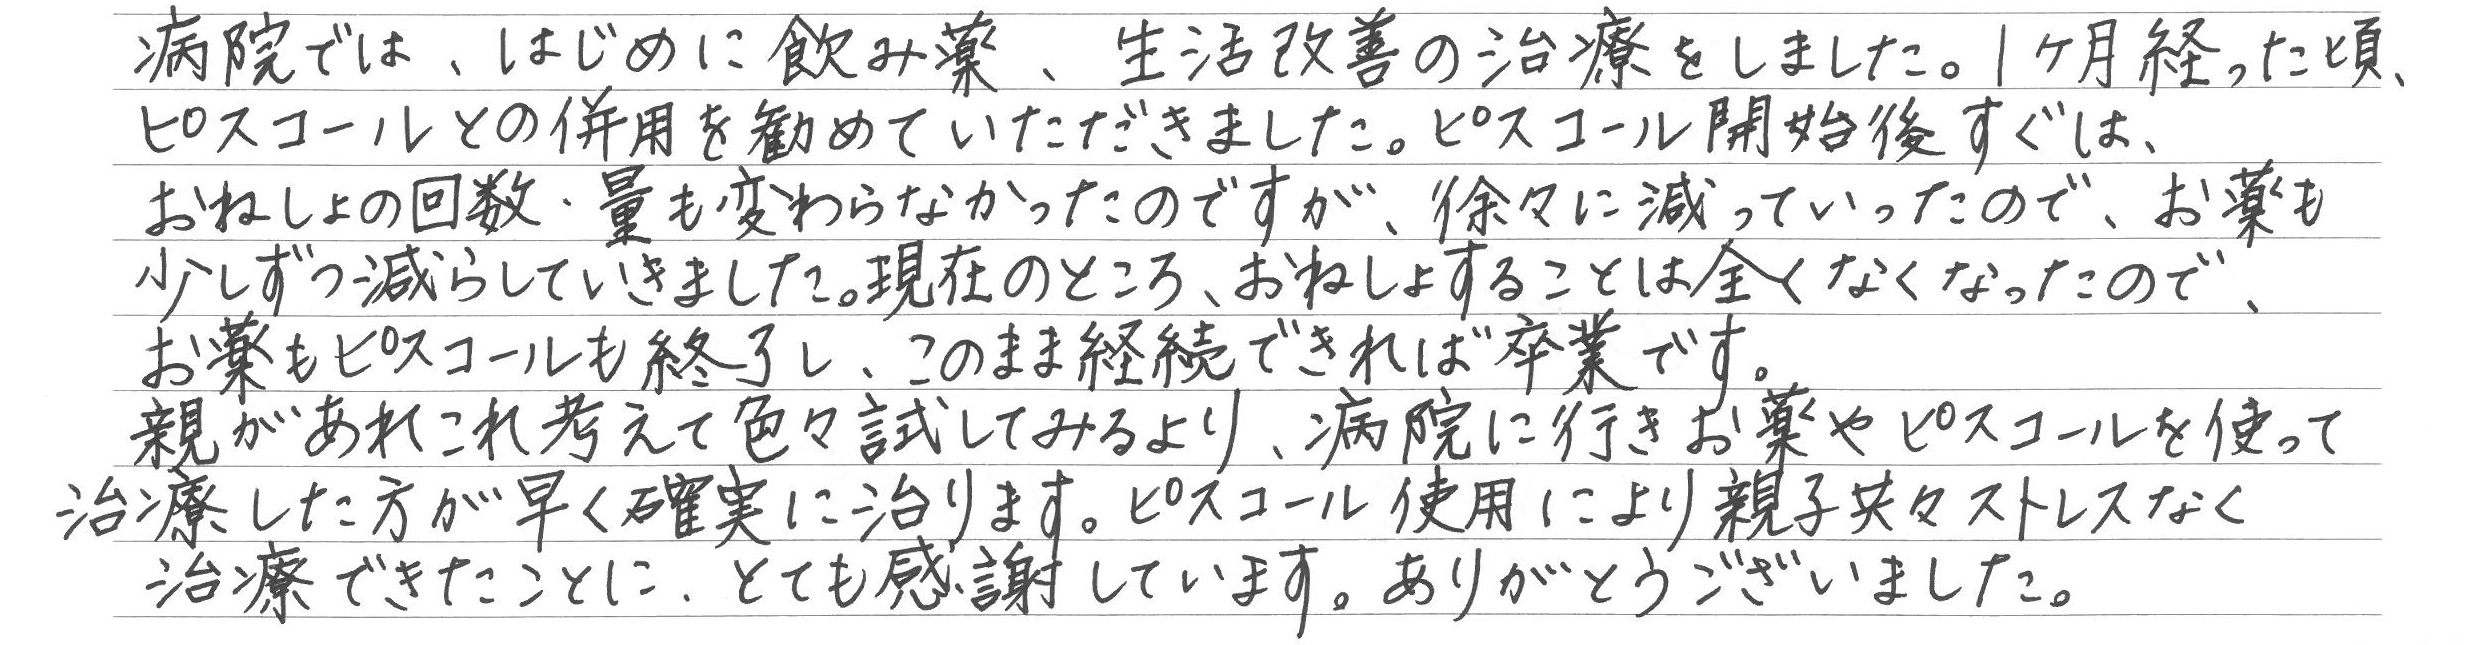 病院では、はじめに飲み薬、生活改善の治療をしました。1ヶ月経った頃、
ピスコールとの併用を勧めていただきました。ピスコール開始後すぐは、
おねしょの回数・量も変わらなかったのですが、徐々に減っていったので、お薬も
少しずつ減らしていきました。現在のところ、おねしょすることは全くなくなったので、
お薬もピスコールも終了し、このまま経続できれば卒業です。
親があれこれ考えて色々試してみるより、病院に行きお薬やピスコールを使って
治療した方が早く確実に治ります。ピスコール使用により親子共々ストレスなく
治療できたことに、とても感謝しています。ありがとうございました。